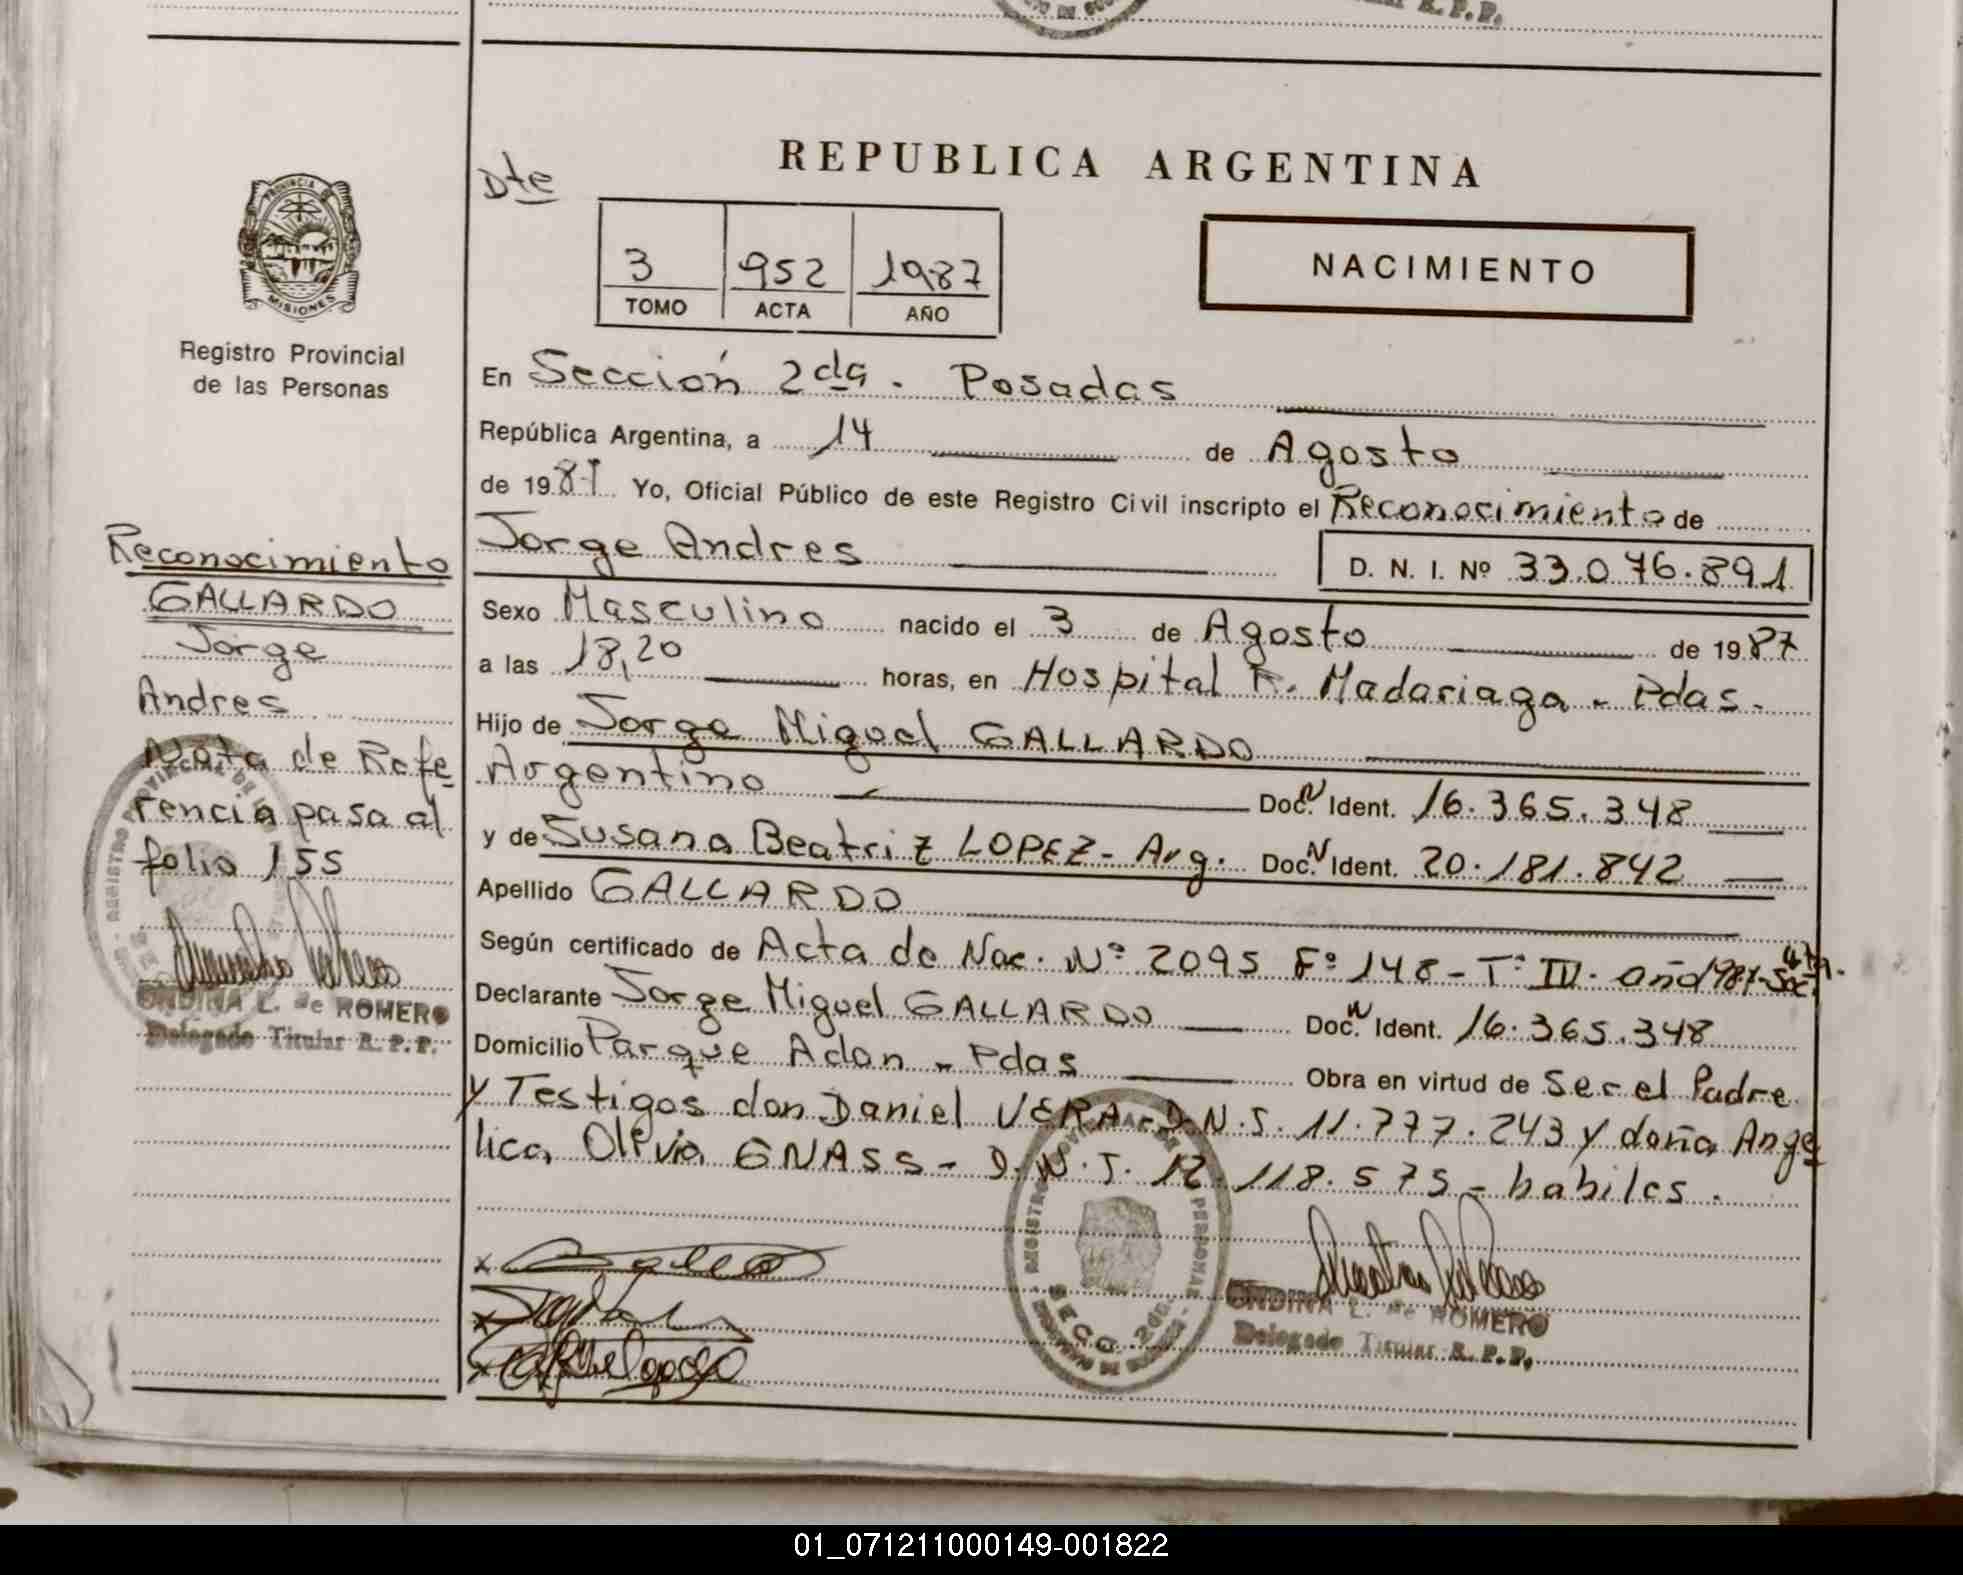 R.P.P.
REPUBLICA ARGENTINA
Dte
3 952 1987
TOMO ACTA AÑO
NACIMIENTO
PROVINCIA DE MISIONES
Registro Provincial
de las Personas
En Sección 2da. Posadas
República Argentina, a 14 de Agosto
de 1987 Yo, Oficial Público de este Registro Civil inscripto el Reconocimiento de
Jorge Andres D. N. I. Nº 33.076.891
Sexo Masculino nacido el 3 de Agosto de 1987
a las 18,20 horas, en Hospital R. Madariaga - Pdas.
Hijo de Jorge Miguel GALLARDO
Argentino Doc. N Ident. 16.365.348
y de Susana Beatriz LOPEZ - Arg. Doc. N Ident. 20.181.842
Apellido GALLARDO
Según certificado de Acta de Nac. Nº 2095 Fº 148 - Tº IV. año 1987 - Sec. 4ta.
Declarante Jorge Miguel GALLARDO Doc. N Ident. 16.365.348
Domicilio Parque Adan - Pdas Obra en virtud de Ser el Padre
y Testigos don Daniel VERA - D.N.I. 11.777.243 y doña Ange
lica Olivia GNASS - D.N.I. 12.118.575 - habiles.
Reconocimiento
GALLARDO
Jorge
Andres
Nota de Refe
rencia pasa al
folio 155
ONDINA L. de ROMERO
Delegado Titular R.P.P.
REGISTRO PROVINCIAL DE LAS PERSONAS
SECC. 2da.
ONDINA L. de ROMERO
Delegado Titular R.P.P.
01_071211000149-001822